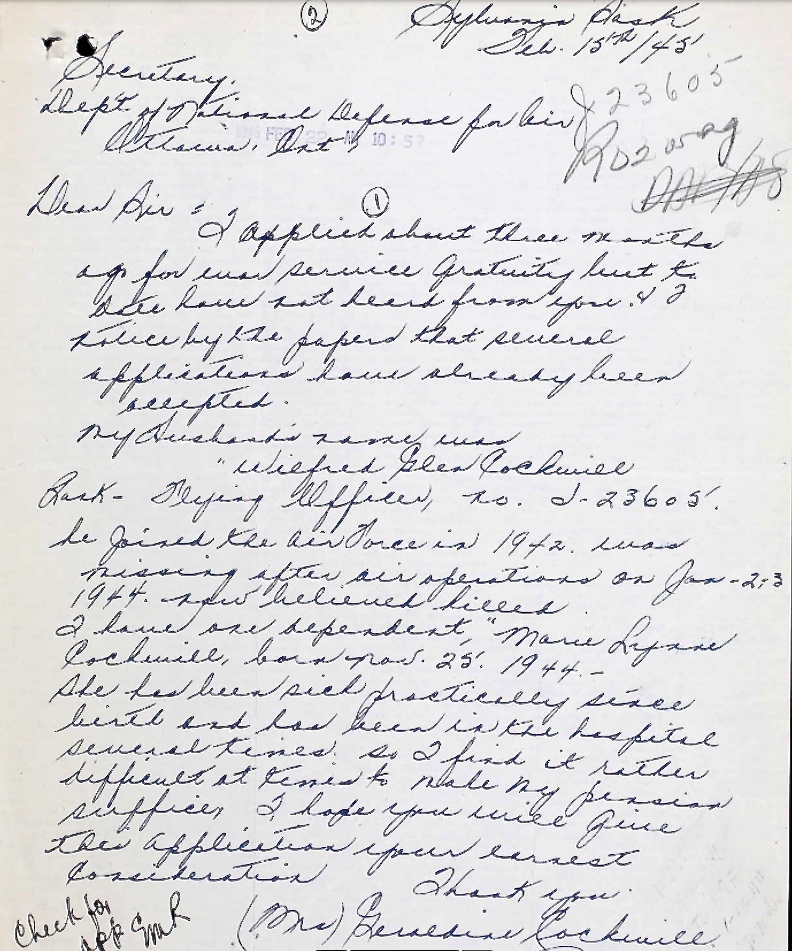 ②
Sylvania Sask
Feb. 15th/45
Secretary,
Dept of National Defense for Air
Ottawa, Ont,
FEB 22 AM 10:57
J 23605
RO2 WAG
Dear Sir: ①
I applied about three months
ago for war service Gratuity but to
date have not heard from you. & I
notice by the papers that several
applications have already been
accepted.
My Husband's name was
"Wilfred Glen Cockwill
Rank - Flying Officer, no. J-23605.
he joined the air Force in 1942. was
missing after air operations on Jan-2-3
1944. now believed killed.
I have one dependent, "Marie Lynne
Cockwill, born nov. 25. 1944.-
She has been sick practically since
birth and has been in the hospital
several times. so I find it rather
difficult at times to make my pension
suffice, I hope you will give
this application your earnest
Consideration
Thank you.
(Mrs) Geraldine Cockwill
Check for
app EMR